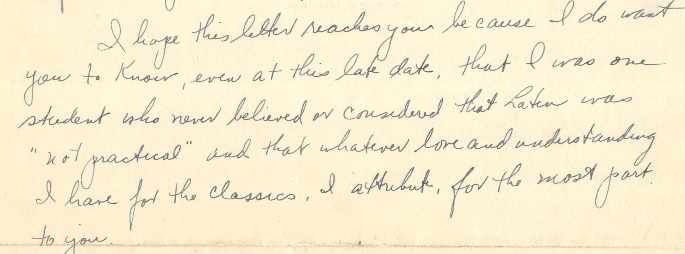 I hope this letter reaches you because I do want
you to know, even at this late date, that I was one
student who never believed or considered that Latin was
"not practical" and that whatever love and understanding
I have for the classics, I attribute, for the most part,
to you.